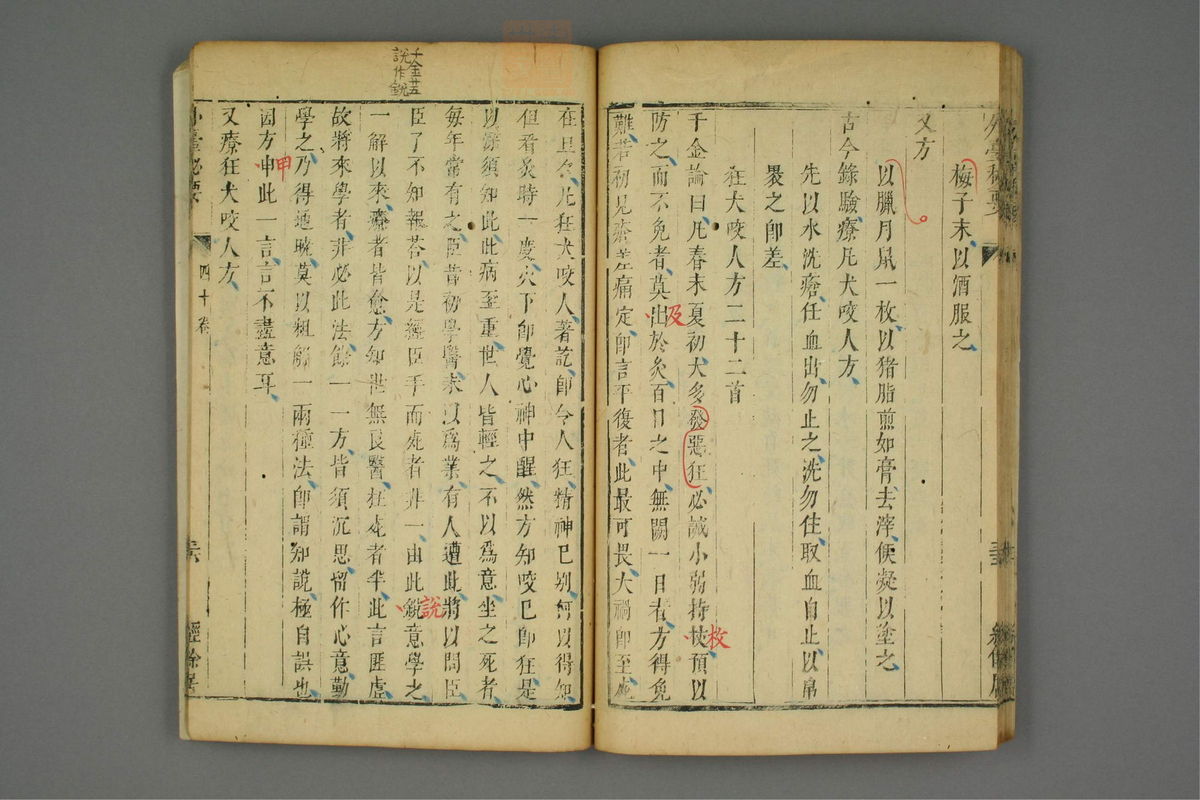 外臺秘要
梅子末以酒服之
又方
以臘月鼠一枚以猪脂煎如膏去滓便凝以塗之
古今錄驗療凡犬咬人方
先以水洗瘡任血出勿止之洗勿住取血自止以帛
裹之即差
狂犬咬人方二十二首
千金論曰凡春末夏初犬多發惡狂必誡小弱持杖預以
枚
防之而不免者莫出於灸百日之中無闕一日者方得免
及
難若初見瘡差痛定即言平復者此最可畏大禍即至死
在旦夕凡狂犬咬人著訖即令人狂精神已別何以得知
但看灸時一度火下即覺心神中醒然方知咬已即狂是
以深須知此此病至重世人皆輕之不以爲意坐之死者
每年常有之臣昔初學醫未以爲業有人遭此將以問臣
臣了不知報荅以是經臣手而死者非一由此銳意學之
說
千金廿五
說作銳
一解以來療者皆愈方知世無良醫狂死者半此言匪虛
故將來學者非必此法餘一一方皆須沉思留作心意勤
學之乃得通曉莫以粗解一兩種法即謂知說極自誤也
因方申此一言言不盡意耳
申
又療狂犬咬人方
外臺秘要
四十卷
經餘居